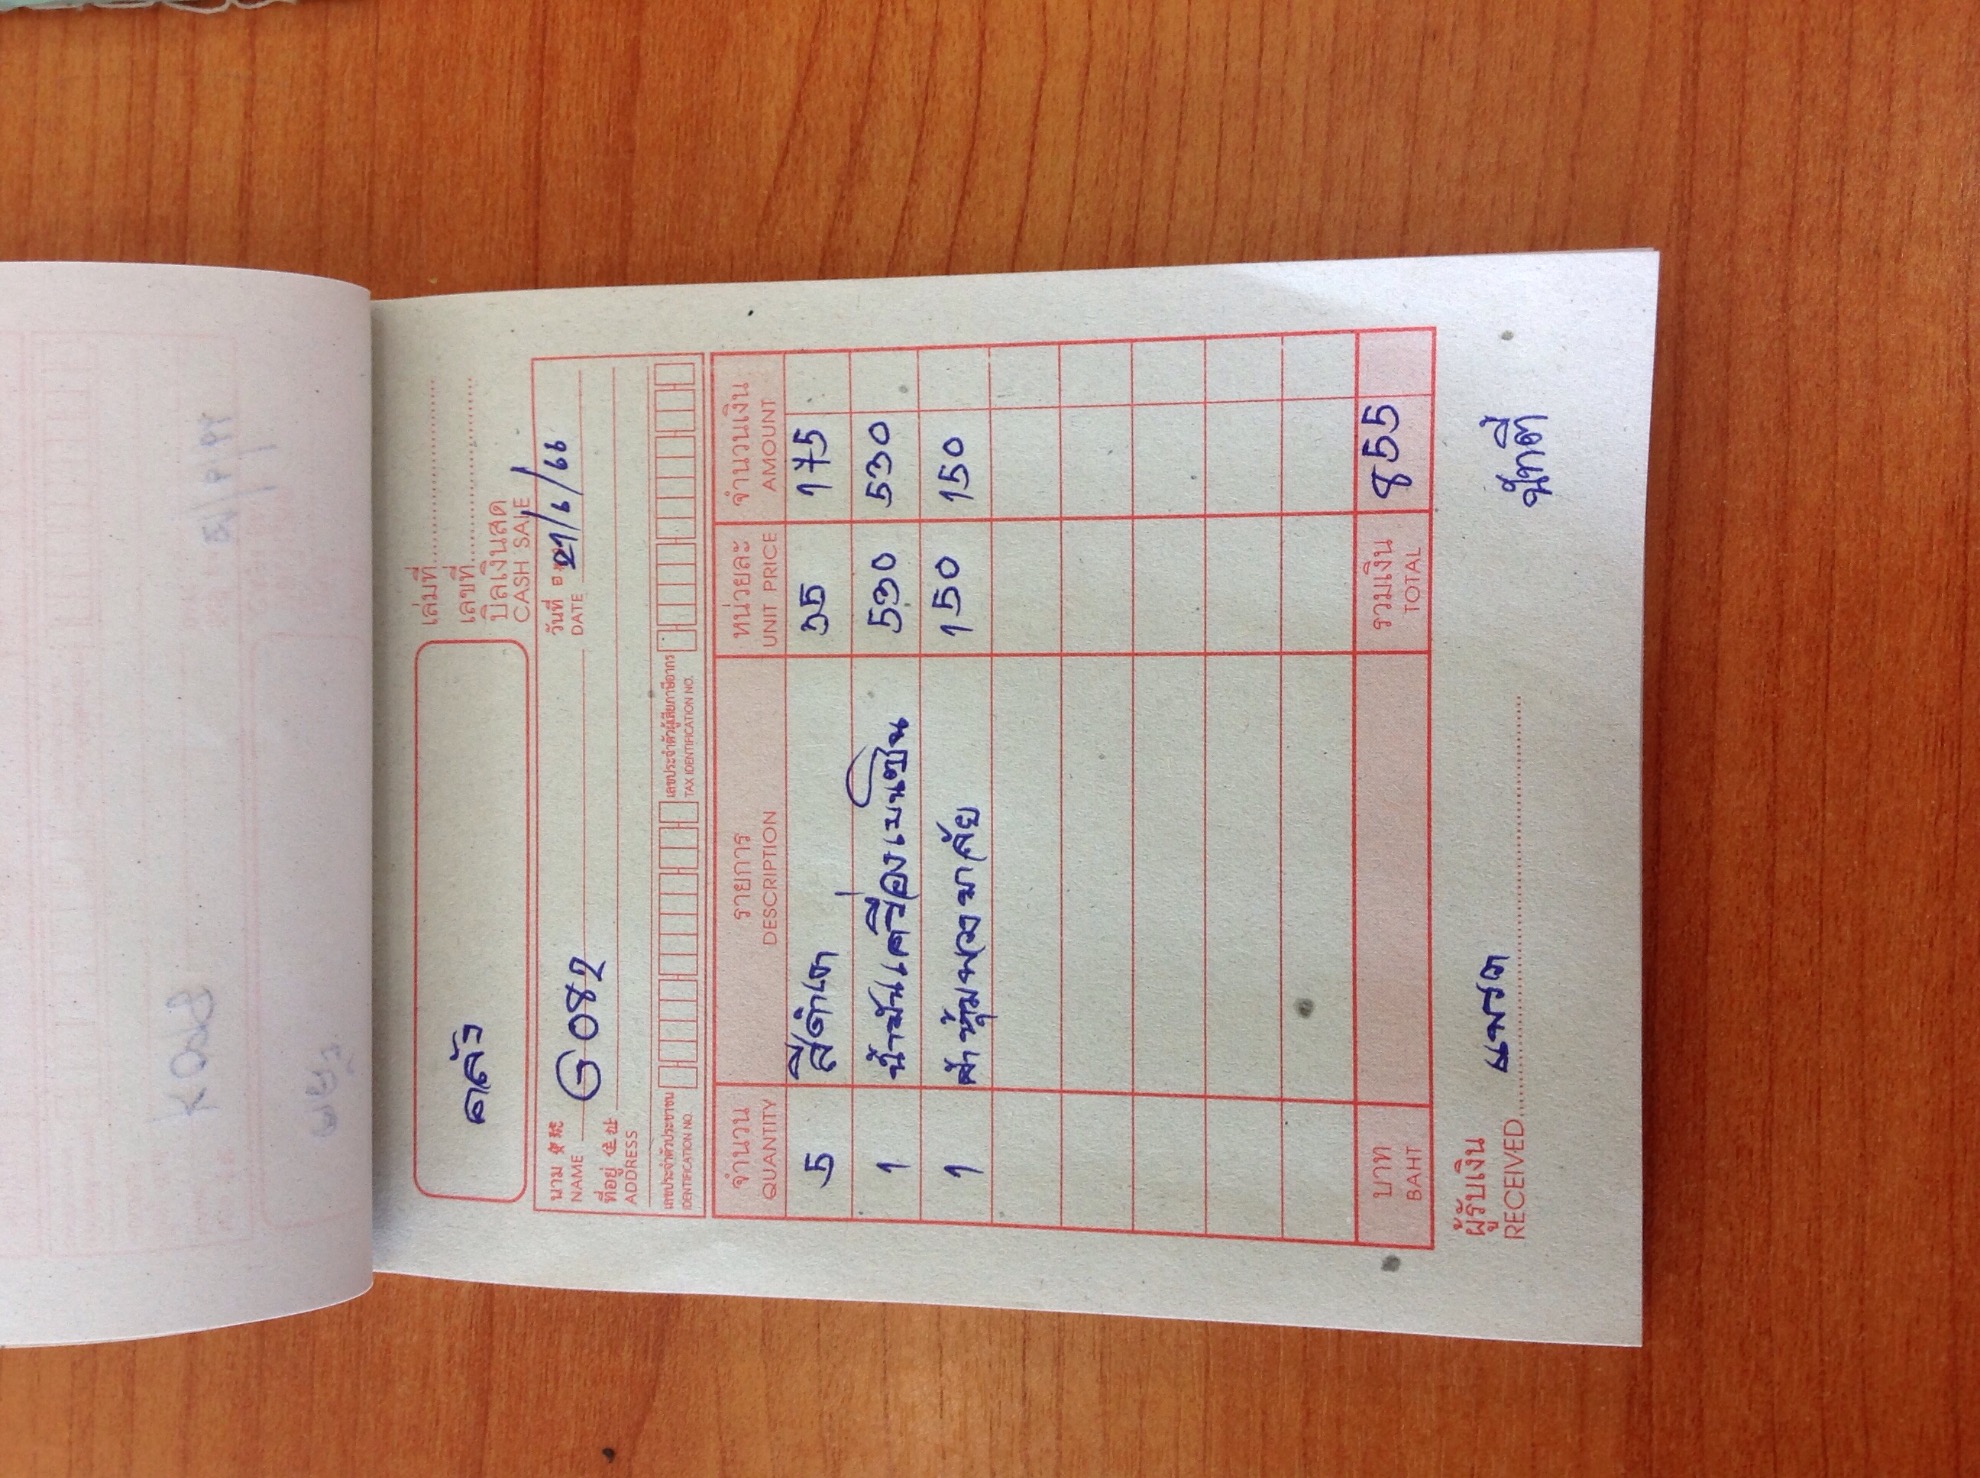 คลัง
เล่มที่
เลขที่
บิลเงินสด
CASH SALE
นาม NAME G 082 วันที่ DATE 21/6/66
ที่อยู่ ADDRESS
เลขประจำตัวประชาชน IDENTIFICATION NO. เลขประจำตัวผู้เสียภาษีอากร TAX IDENTIFICATION NO.
จำนวน รายการ หน่วยละ จำนวนเงิน
QUANTITY DESCRIPTION UNIT PRICE AMOUNT
5 สีดำเงา 35 175
1 น้ำมันเครื่องเบนซิน 530 530
1 ผ้าหุ้มพวงมาลัย 150 150
บาท BAHT รวมเงิน TOTAL 855
ผู้รับเงิน
RECEIVED